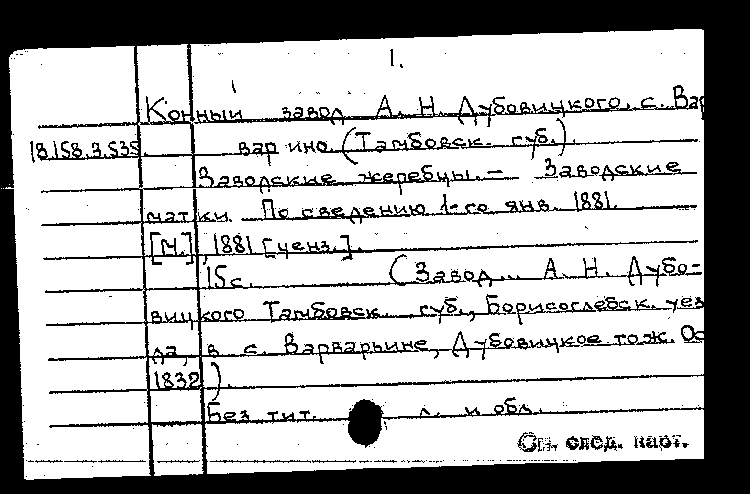 1.
Конный завод А. Н. Дубовицкого, с. Вар
18.158.3.535 варино. (Тамбовск. губ.).
Заводские жеребцы. – Заводские
матки. По сведению 1-го янв. 1881.
[М.], 1881 [ценз.].
15 с. (Завод... А. Н. Дубо-
вицкого Тамбовск. губ., Борисоглебск. уез
да, в с. Варварьине, Дубовицкое тож. Ос
1832).
Без тит. л. и обл.
См. след. карт.